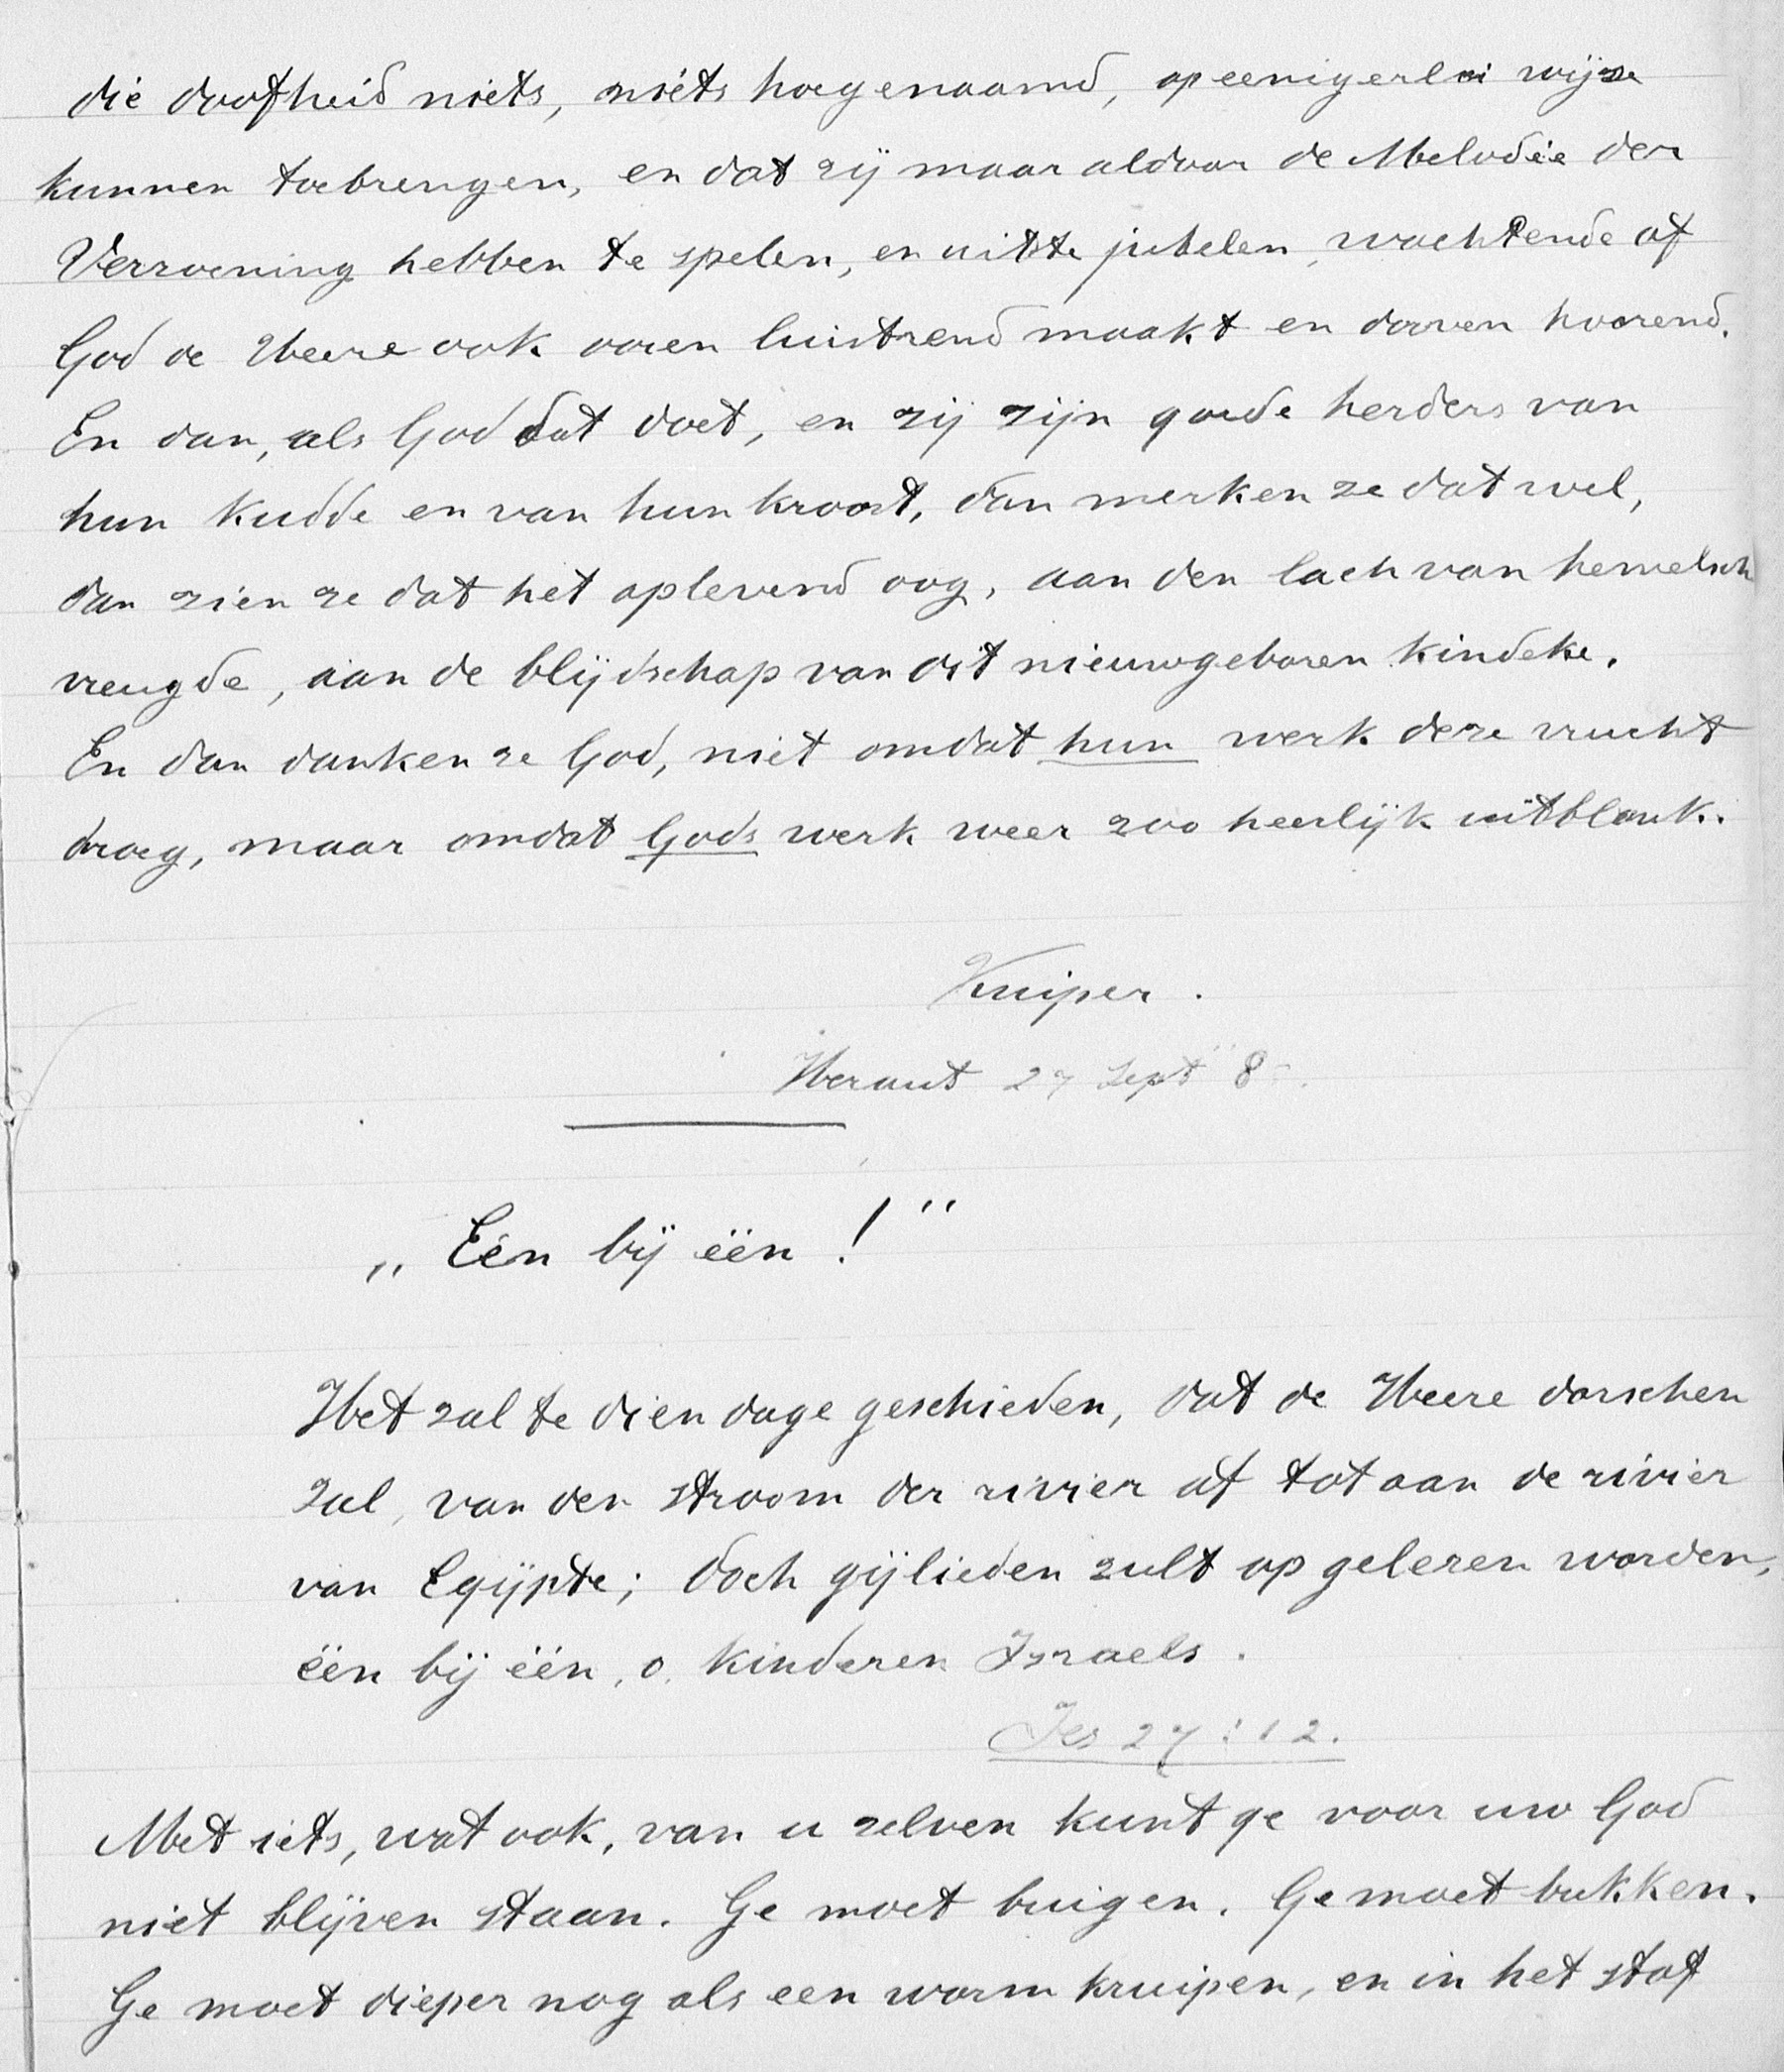 die doofheid niets, niets hoegenaamd, op eenigerlei wijze
kunnen toebrengen, en dat zij maar aldoor de Melodie der
Verzoening hebben te spelen, en uit te jubelen, wachtende of
God de Heere ook ooren luistrend maakt en dooven hoorend.
En dan, als God dat doet, en zij zijn goede herders van
hun kudde en van hun kroost, dan merken ze dat wel,
dan zien ze dat het oplevend oog, aan den lach van hemelsch
vreugde, aan de blijdschap van dit nieuwgeboren kindeke.
En dan danken ze God, niet omdat hun werk deze vrucht
droeg, maar omdat Gods werk weer zoo heerlijk uitblonk.
Kuiper.
Heraut 27 Sept 8
„Eén bij één!"
Het zal te dien dage geschieden, dat de Heere dorschen
zal, van den stroom der rivier af tot aan de rivier
van Egijpte; doch gijlieden zult op gelezen worden,
één bij één, o. kinderen Israels.
Jes 27:12.
Met iets, wat ook, van u zelven kunt ge voor uw God
niet blijven staan. Ge moet buigen. Ge moet bukken.
Ge moet dieper nog als een worm kruipen, en in het stof